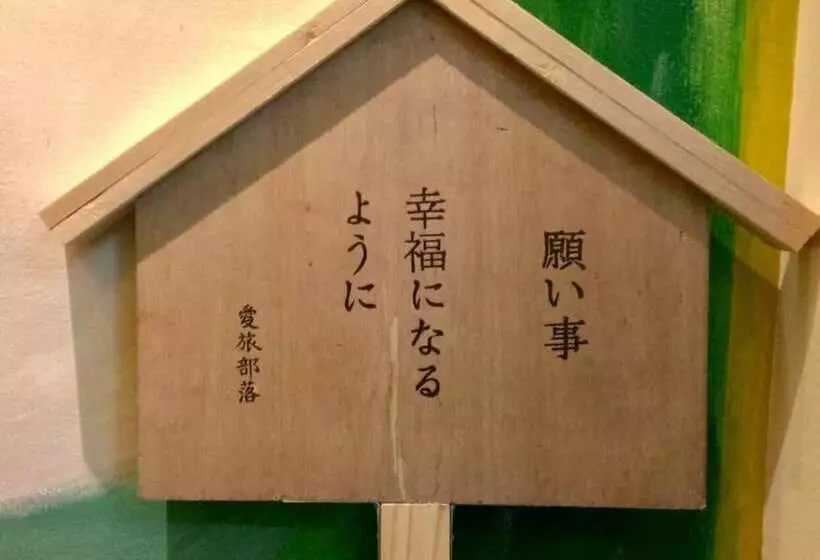 願い事
幸福になる
ように
愛旅部落